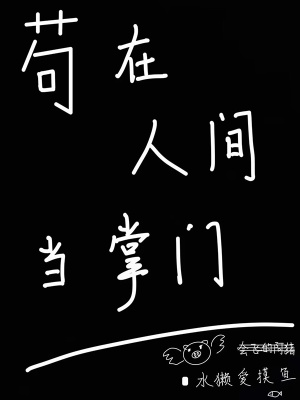 苟在
人间
当掌门
会飞的阿猪
水獭爱摸鱼